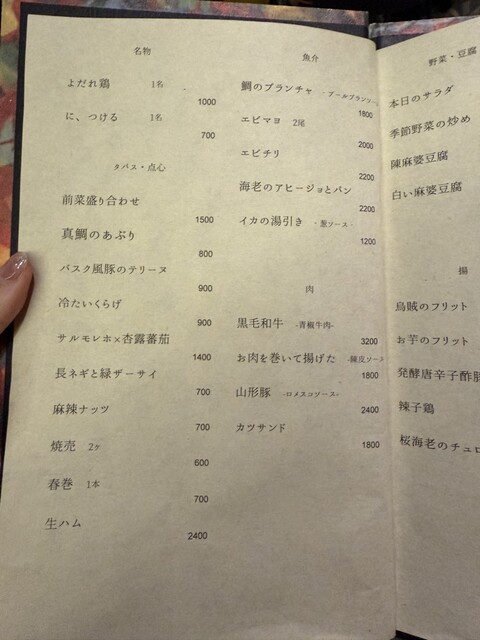 名物
よだれ鶏 1名
1000
に、つける 1名
700
タパス・点心
前菜盛り合わせ
1500
真鯛のあぶり
800
バスク風豚のテリーヌ
900
冷たいくらげ
900
サルモレホ×杏露蕃茄
1400
長ネギと緑ザーサイ
700
麻辣ナッツ
700
焼売 2ヶ
600
春巻 1本
700
生ハム
2400
魚介
鯛のプランチャ -ブールブランソース-
1800
エビマヨ 2尾
2000
エビチリ
2200
海老のアヒージョとパン
2200
イカの湯引き -葱ソース-
1200
肉
黒毛和牛 -青椒牛肉-
3200
お肉を巻いて揚げた -陳皮ソース
1800
山形豚 -ロメスコソース-
2400
カツサンド
1800
野菜・豆腐
本日のサラダ
季節野菜の炒め
陳麻婆豆腐
白い麻婆豆腐
揚
烏賊のフリット
お芋のフリット
発酵唐辛子酢豚
辣子鶏
桜海老のチュロ